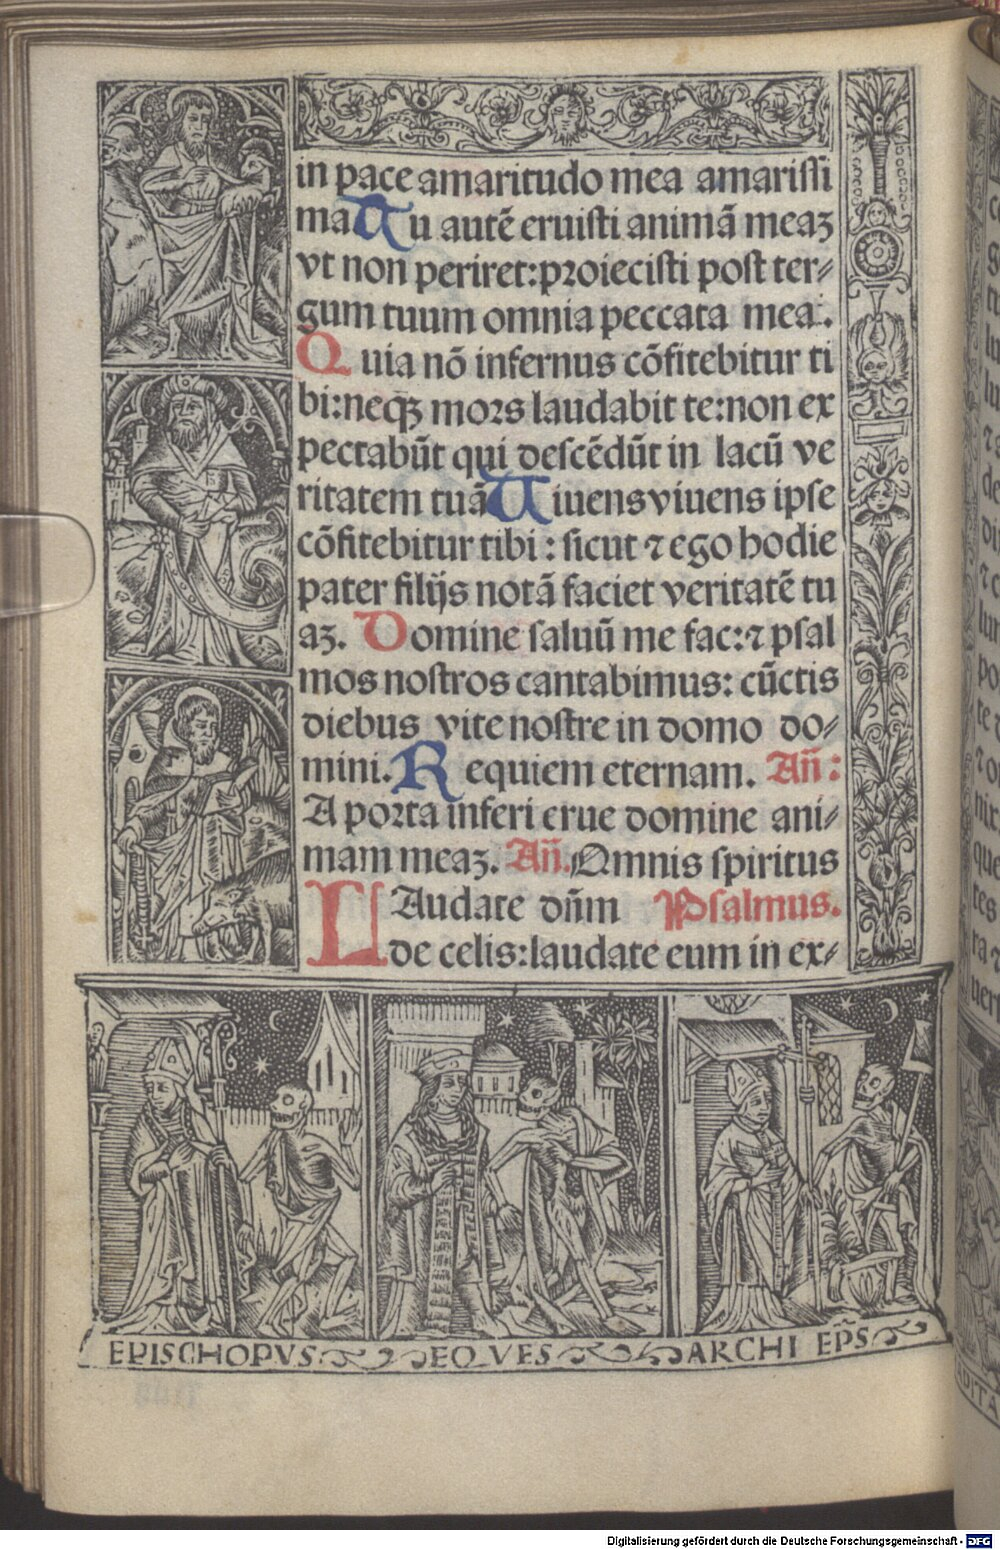 in pace amaritudo mea amarissi
ma Tu autē eruisti animā meaꝫ
vt non periret: proiecisti post ter⸗
gum tuum omnia peccata mea.
Quia nō infernus cōfitebitur ti
bi: neqꝫ mors laudabit te: non ex
pectabūt qui descēdūt in lacū ve
ritatem tuā Uiuens viuens ipse
cōfitebitur tibi: sicut ⁊ ego hodie
pater filijs notā faciet veritatē tu
aꝫ. Domine saluū me fac: ⁊ psal
mos nostros cantabimus: cūctis
diebus vite nostre in domo do⸗
mini. Requiem eternam. Añ:
A porta inferi erue domine ani⸗
mam meaꝫ. Añ. Omnis spiritus
LAudate dñm Psalmus.
de celis: laudate eum in ex⸗
EPISCHOPVS EQVES ARCHI EP̄S
Digitalisierung gefördert durch die Deutsche Forschungsgemeinschaft - DFG